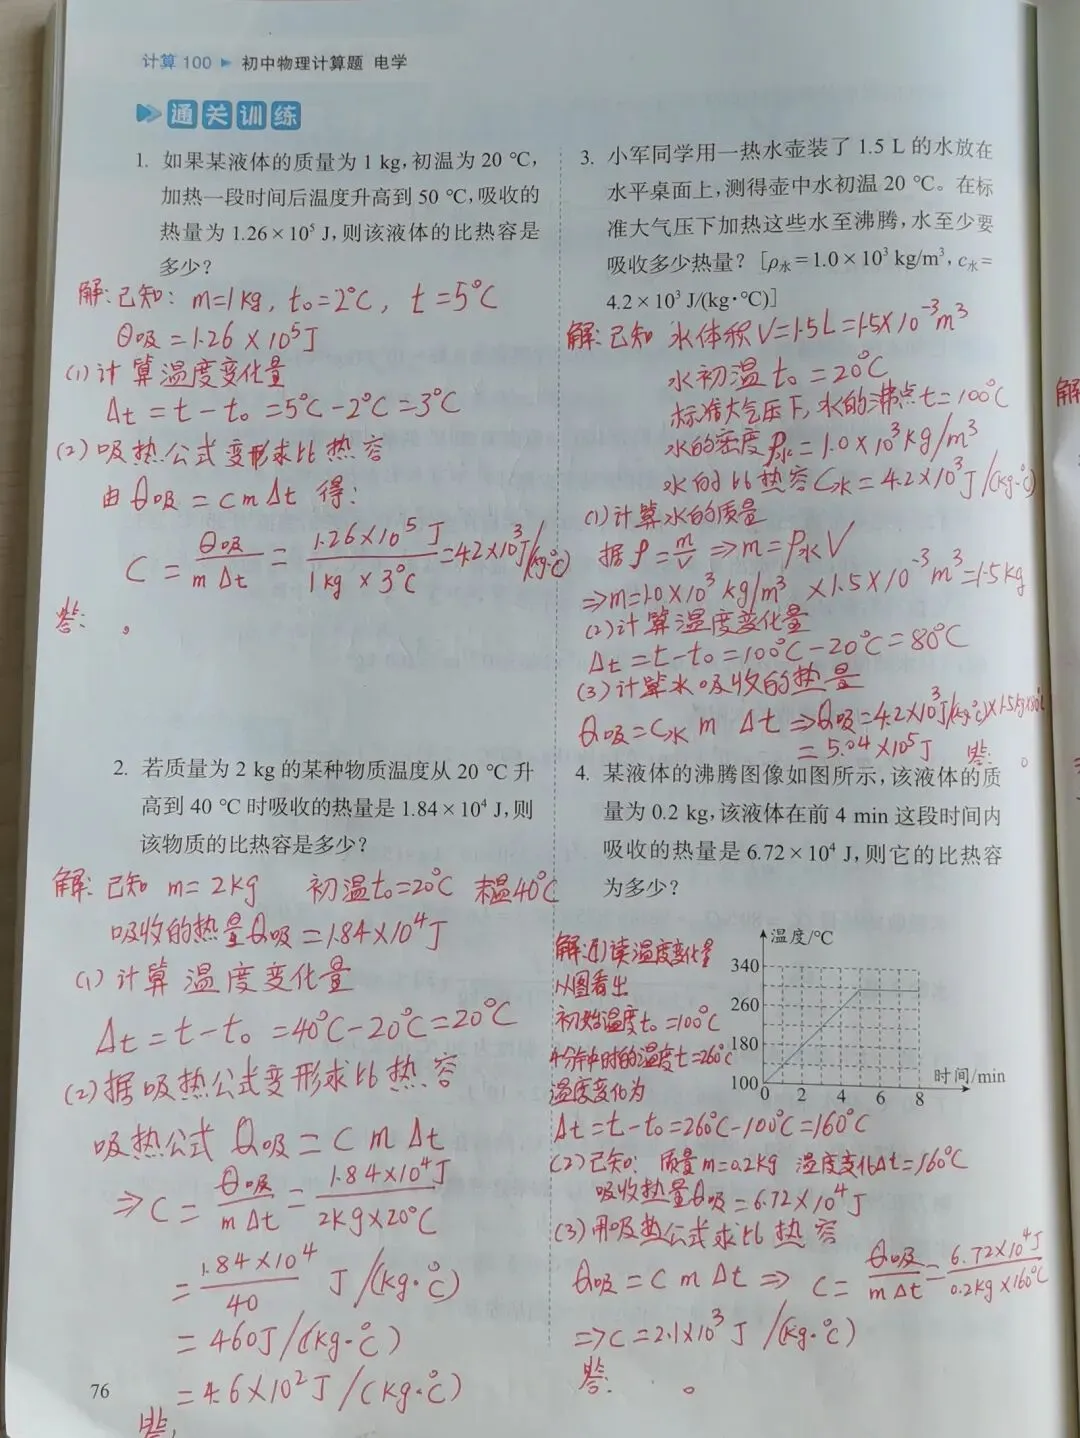 计算100 ▶ 初中物理计算题 电学
通关训练
1. 如果某液体的质量为 1 kg,初温为 20 ℃,
加热一段时间后温度升高到 50 ℃,吸收的
热量为 1.26×10⁵ J,则该液体的比热容是
多少?
解:已知: m=1kg, t₀=2℃, t=5℃
Q吸=1.26×10⁵J
(1)计算温度变化量
Δt=t-t₀=5℃-2℃=3℃
(2)吸热公式变形求比热容
由Q吸=cmΔt 得:
C=Q吸/mΔt=1.26×10⁵J/1kg×3℃=4.2×10³J/(kg·℃)
答: 。
2. 若质量为 2 kg 的某种物质温度从 20 ℃ 升
高到 40 ℃ 时吸收的热量是 1.84×10⁴ J,则
该物质的比热容是多少?
解:已知 m=2kg 初温t₀=20℃ 末温40℃
吸收的热量Q吸=1.84×10⁴J
(1)计算温度变化量
Δt=t-t₀=40℃-20℃=20℃
(2)据吸热公式变形求比热容
吸热公式 Q吸=cmΔt
⇒C=Q吸/mΔt=1.84×10⁴J/2kg×20℃
=1.84×10⁴/40 J/(kg·℃)
=460J/(kg·℃)
=4.6×10²J/(kg·℃)
答:
76
3. 小军同学用一热水壶装了 1.5 L 的水放在
水平桌面上,测得壶中水初温 20 ℃。在标
准大气压下加热这些水至沸腾,水至少要
吸收多少热量? [ρ水=1.0×10³ kg/m³,c水=
4.2×10³ J/(kg·℃)]
解:已知 水体积V=1.5L=1.5×10⁻³m³
水初温t₀=20℃
标准大气压下,水的沸点t=100℃
水的密度ρ水=1.0×10³kg/m³
水的比热容C水=4.2×10³J/(kg·℃)
(1)计算水的质量
据ρ=m/V⇒m=ρ水V
⇒m=1.0×10³kg/m³×1.5×10⁻³m³=1.5kg
(2)计算温度变化量
Δt=t-t₀=100℃-20℃=80℃
(3)计算水吸收的热量
Q吸=C水mΔt⇒Q吸=4.2×10³J/(kg·℃)×1.5kg×80℃
=5.04×10⁵J 答: 。
4. 某液体的沸腾图像如图所示,该液体的质
量为 0.2 kg,该液体在前 4 min 这段时间内
吸收的热量是 6.72×10⁴ J,则它的比热容
为多少?
解:(1)读温度变化量
从图看出
初始温度t₀=100℃
4分钟时的温度t=260℃
温度变化为
温度/℃
340
260
180
100
0 2 4 6 8
时间/min
Δt=t-t₀=260℃-100℃=160℃
(2)已知: 质量m=0.2kg 温度变化Δt=160℃
吸收热量Q吸=6.72×10⁴J
(3)用吸热公式求比热容
Q吸=cmΔt⇒C=Q吸/mΔt=6.72×10⁴J/0.2kg×160℃
⇒C=2.1×10³J/(kg·℃)
答: 。
解